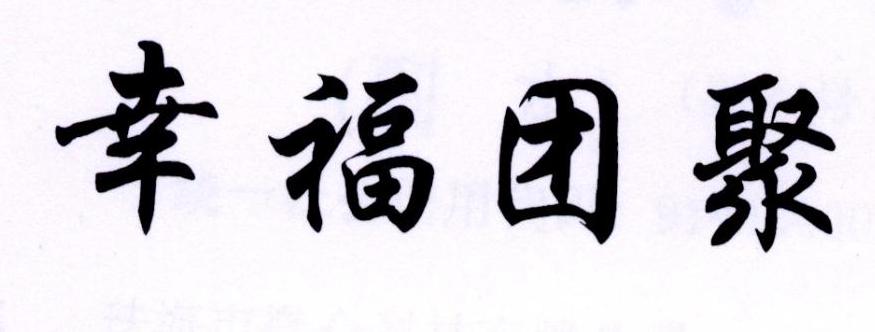 幸福团聚